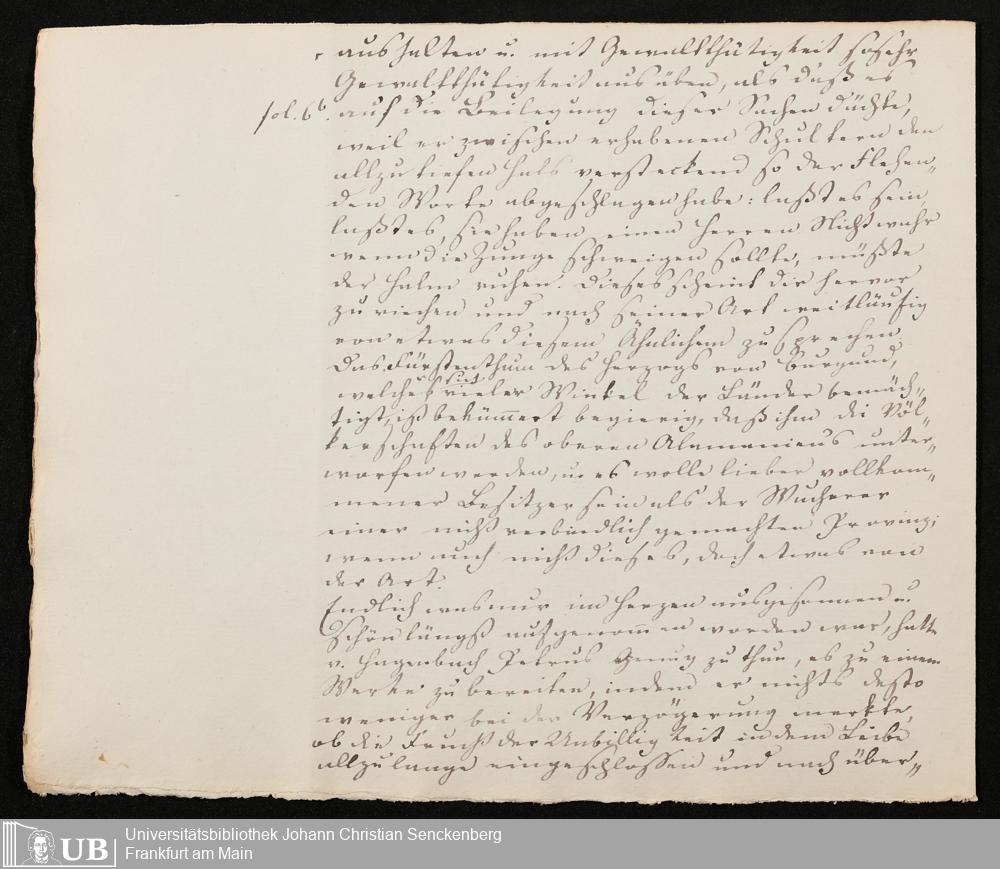 aushalten u. mit Gewaltthätigkeit sosehr
Gewaltthätigkeit ausüben, als daß es
fol. 6b. auf die Beilegung dieser Sachen dächte,
weil er zwischen erhabenen Schultern den
allzu tiefen Hals versteckend so der Flehen„
den Worte abgeschlagen habe: laßt es sein,
laßt es, sie haben einen Herren Nicht wahr
wenn die Zunge schweigen sollte, müßte
der Halm ruhen. Dieses scheint dir hervor
zu riechen und nach seiner Art weitläufig
von etwas diesem Ähnlichem zu sprechen.
Das Fürstenthum des Herzogs von Burgund,
welches sich vieler Winkel der Länder bemäch„
tigt, ist bekümmert begierig, daß ihm die Völ„
kerschaften des oberen Alemaniens unter„
worfen werden, u. es wolle lieber vollkom„
mener Besitzer sein als der Wucherer
einer nicht verbindlich gemachten Provinz;
wenn auch nicht dieses, doch etwas von
der Art.
Endlich was nur im Herzen ausgesonnen u.
schon längst aufgenom̅en worden war, hatte
v. Hagenbach Petrus genug zu thun, es zu einem
Werke zu bereiten, indem er nichts desto
weniger bei der Verzögerung merkte,
ob die Frucht der Unbilligkeit in dem Leibe
allzulange eingeschlossen und nach über„
UB
Universitätsbibliothek Johann Christian Senckenberg
Frankfurt am Main